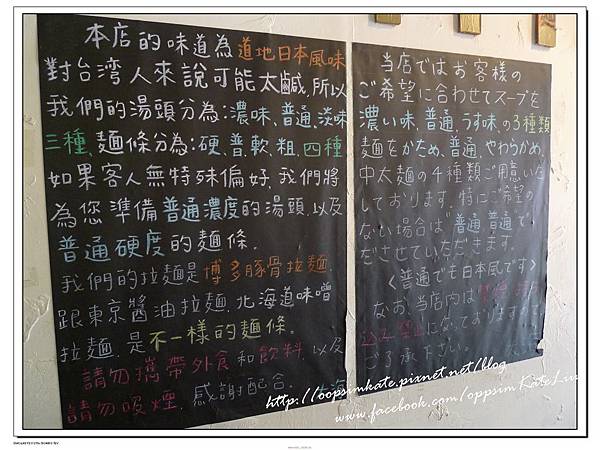 本店的味道為道地日本風味
對台湾人來說可能太鹹,所以
我們的湯頭分為:濃味、普通、淡味
三種、麵條分為:硬、普、軟、粗、四種
如果客人無特殊偏好,我們將
為您準備普通濃度的湯頭以及
普通硬度的麵條.
我們的拉麵是博多豚骨拉麵.
跟東京醬油拉麵.北海道味噌
拉麵.是不一樣的麵條.
請勿攜帶外食和飲料.以及
請勿吸煙.感謝配合.
当店ではお客様の
ご希望に合わせてスープを
濃い味、普通、うす味、の3種類
麺をかため、普通、やわらかめ、
中太麺の4種類ご用意いた
しております。特にご希望の
ない場合は"普通普通"で
ださせていただきます。
〈普通でも日本風です〉
なお、当店内は
になっております
ご了承下さい。
http://oopsimkate.pixnet.net/blog
www.facebook.com/oppsimKateLin